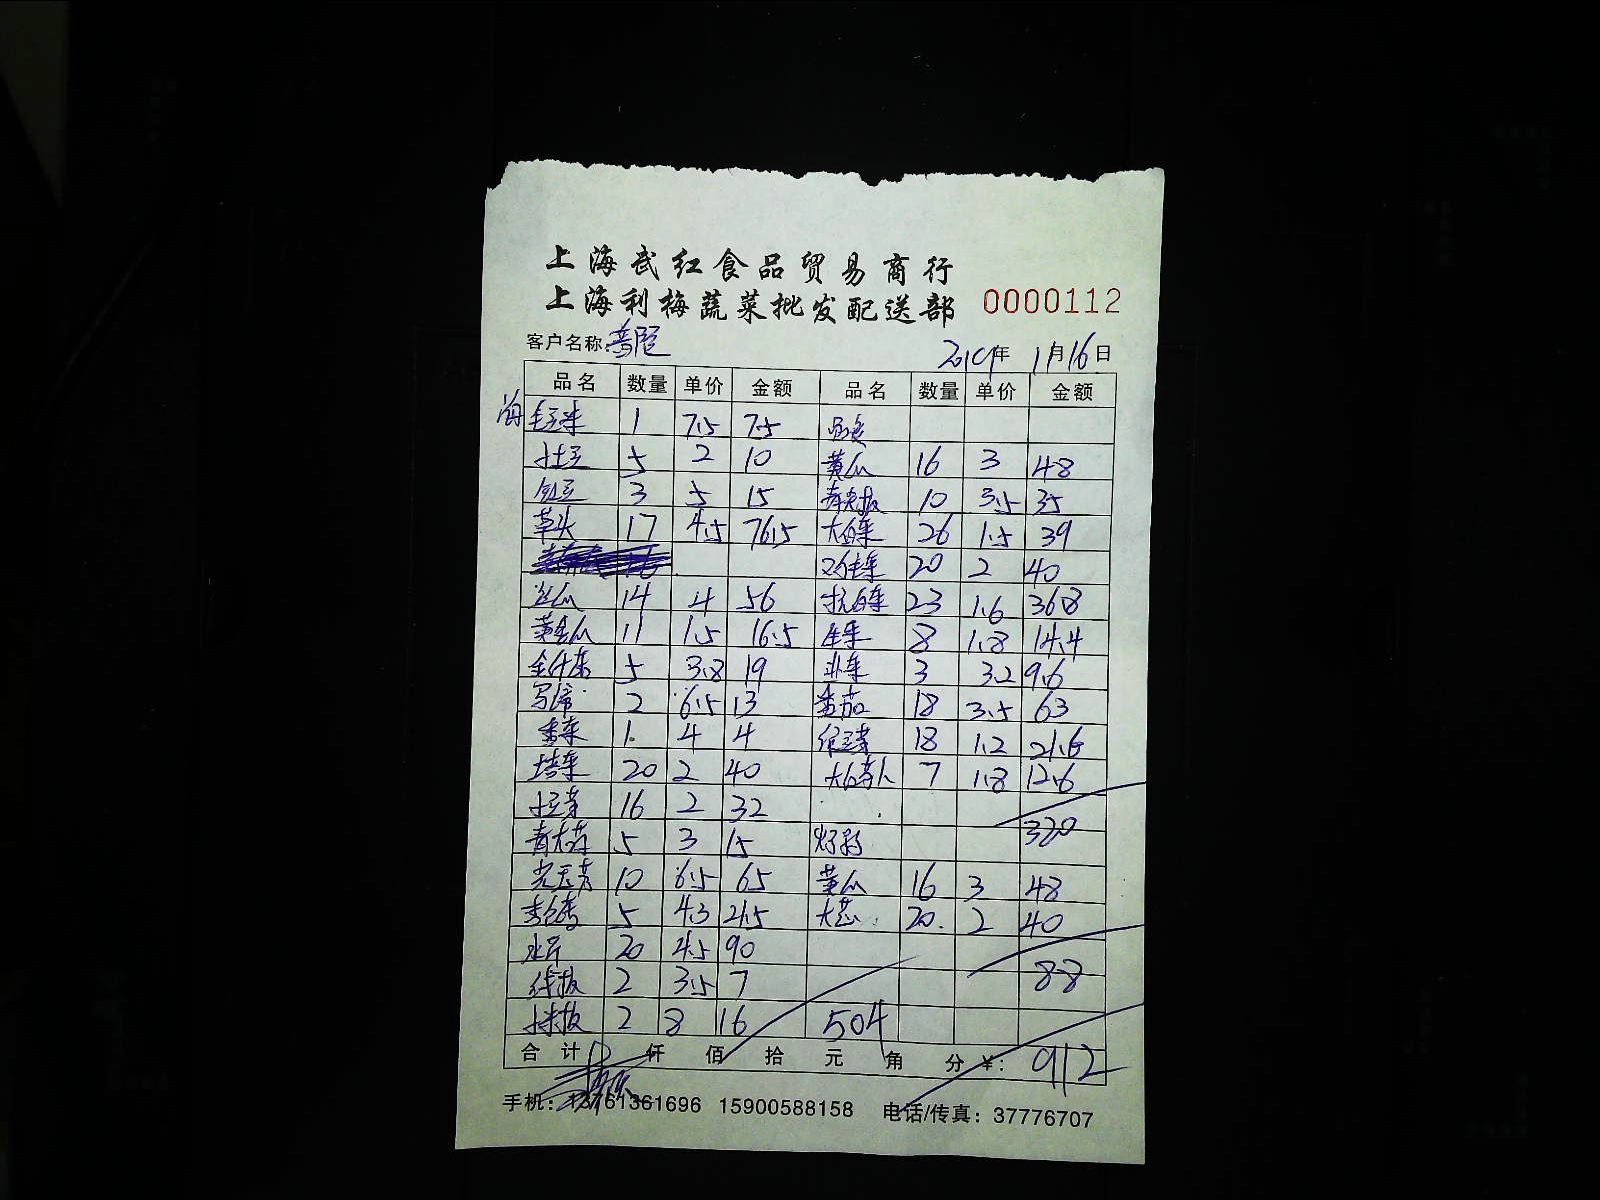 上海武红食品贸易商行
上海利梅蔬菜批发配送部 0000112
客户名称: 2019年 1月16日
品名 数量 单价 金额 品名 数量 单价 金额
海 毛豆米 1 7.5 7.5
土豆 5 2 10 黄瓜 16 3 48
3 5 15 10 3.5 35
草头 17 4.5 76.5 大白菜 26 1.5 39
20 2 40
丝瓜 14 4 56 杭白菜 23 1.6 36.8
黄金瓜 11 1.5 16.5 生菜 8 1.8 14.4
金针菇 5 3.8 19 3 3.2 9.6
马蹄 2 6.5 13 番茄 18 3.5 63
香菜 1 4 4 绿豆芽 18 1.2 21.6
塔菜 20 2 40 7 1.8 12.6
小豆芽 16 2 32
320
青大蒜 5 3 15
10 6.5 65 黄瓜 16 3 48
5 4.3 21.5 大芯 20 2 40
20 4.5 90
88
线椒 2 3.5 7
小米椒 2 8 16 504
合计 仟 佰 拾 元 角 分 ¥: 912
手机: 13761361696 15900588158 电话/传真: 37776707